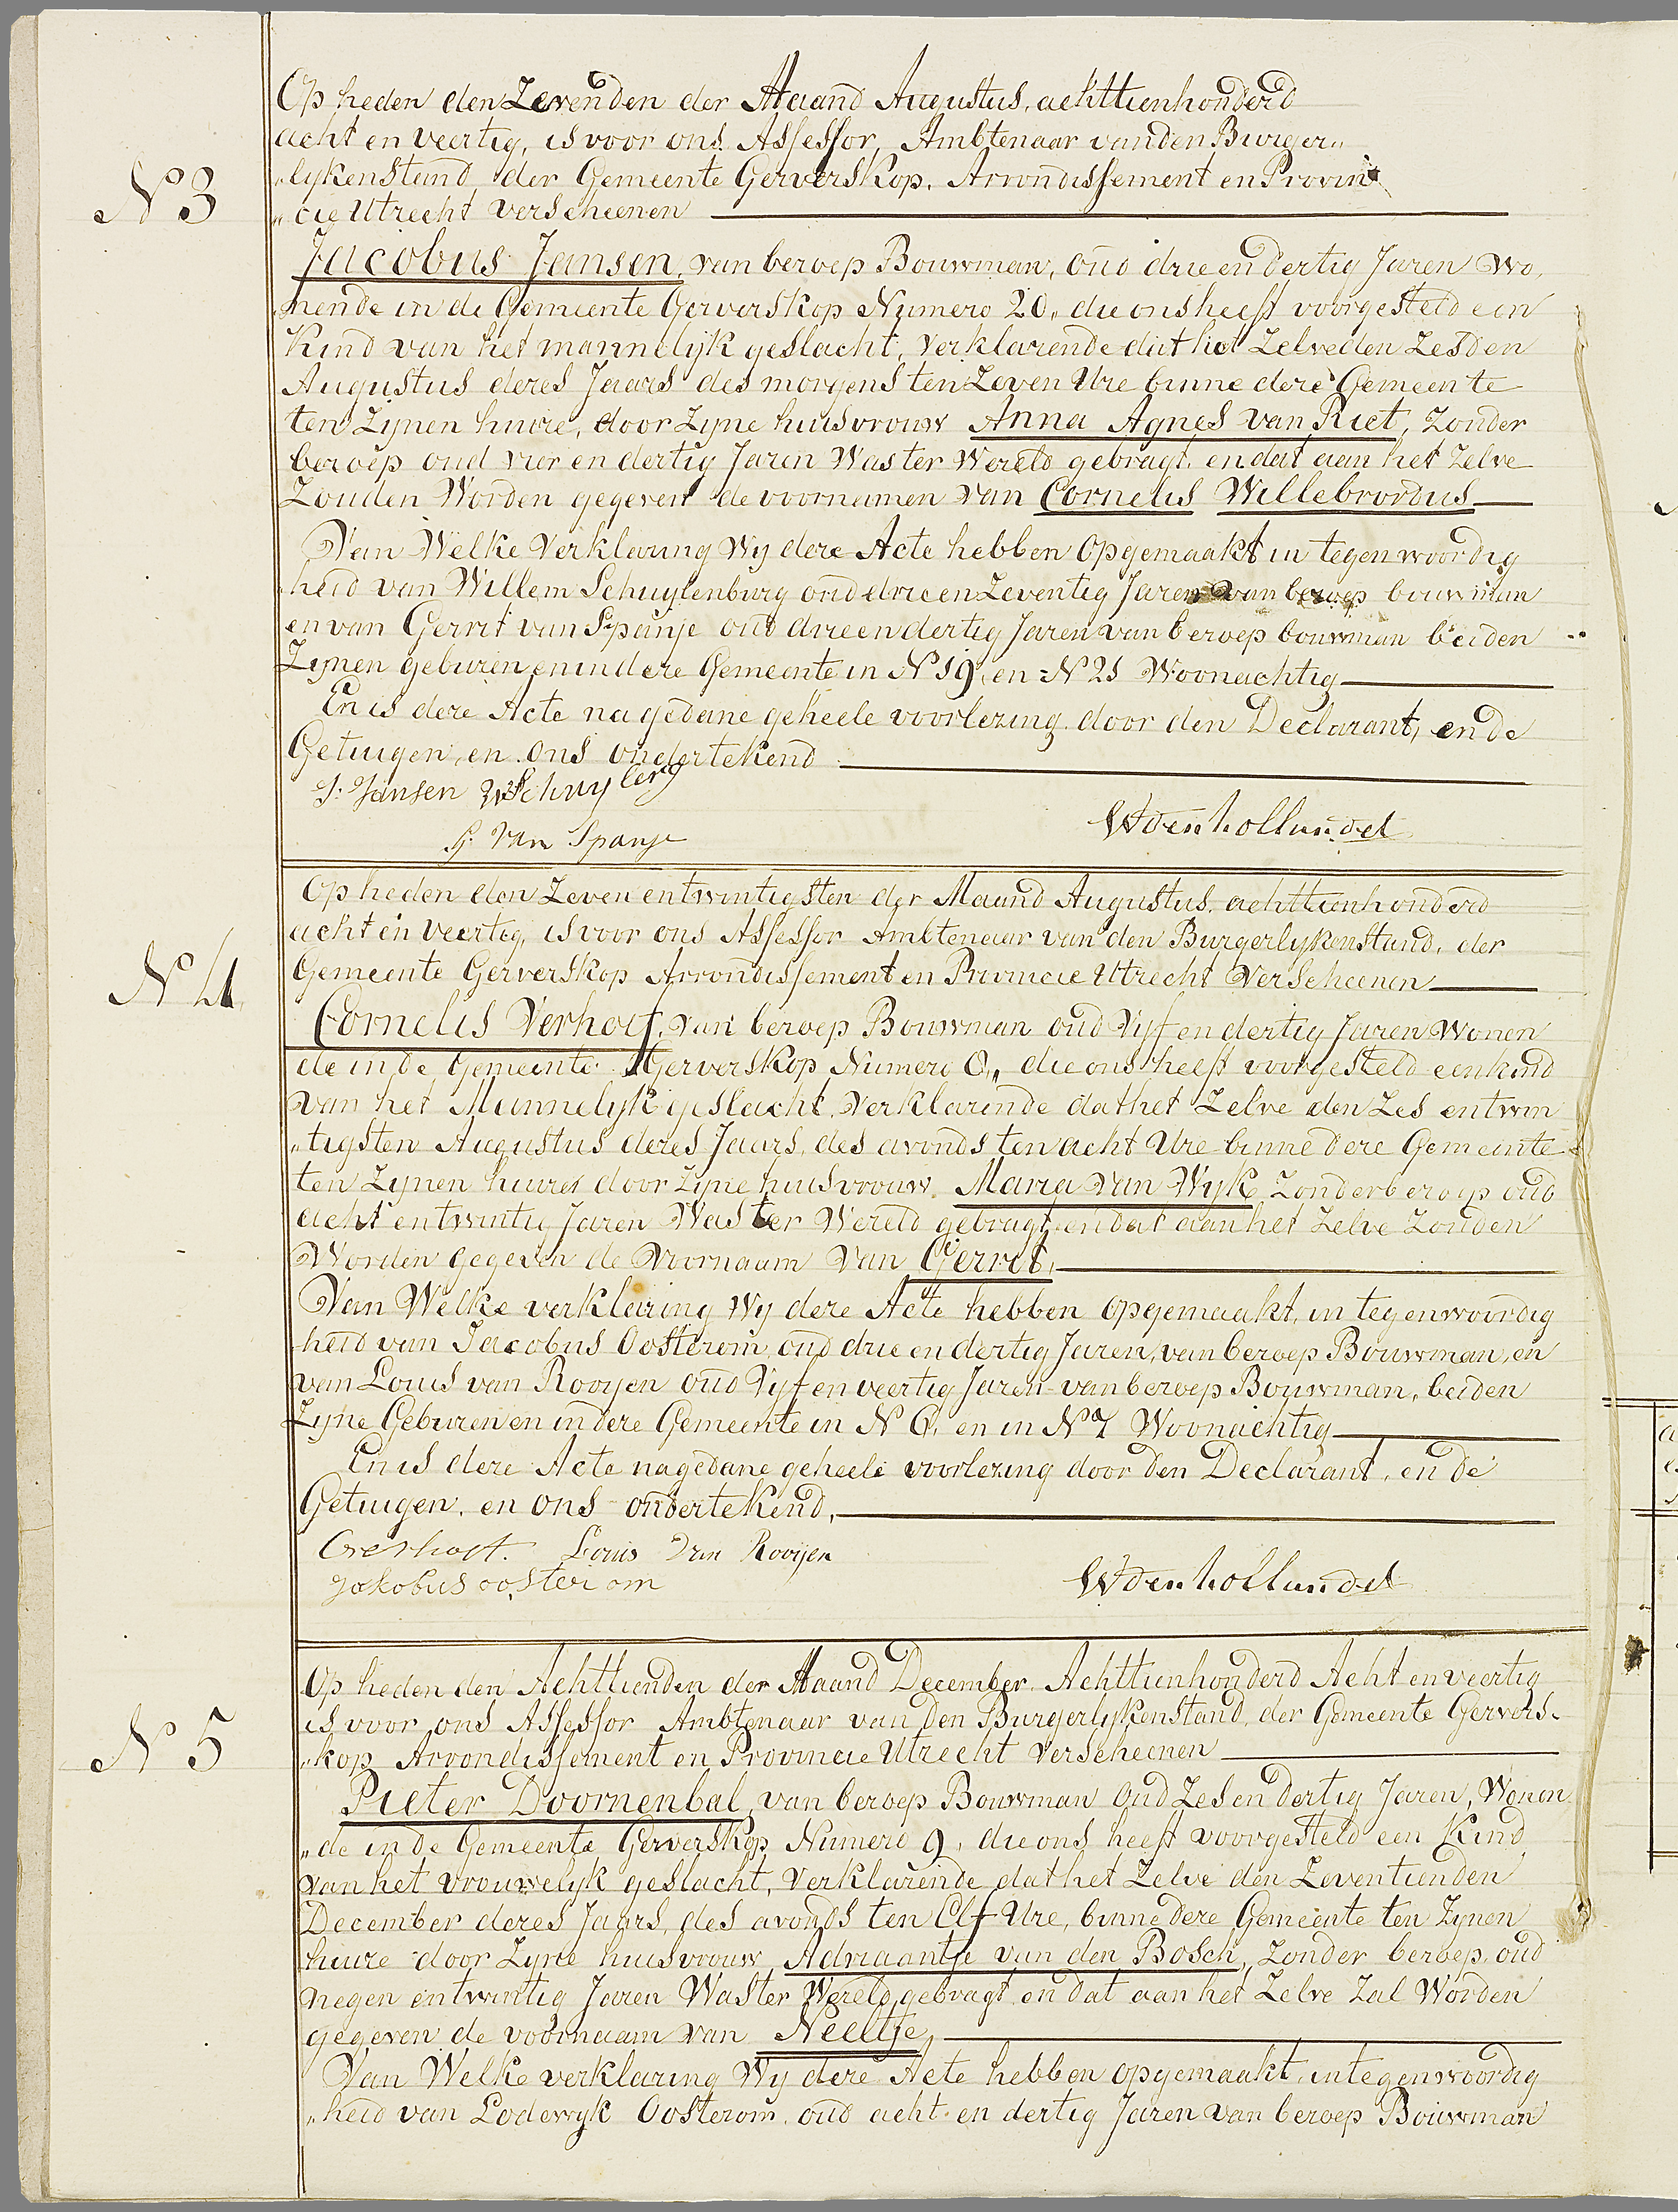 Op heden den Zevenden der Maand Augustus, achttienhonderd
acht en veertig, is voor ons Assessor, Ambtenaar van den Burger„
N 3
„lykenstand der Gemeente Gerverskop, Arrondissement en Provin
„cie Utrecht verscheenen
Jacobus Jansen, van beroep Bouwman, oud drie en dertig Jaren Wo„
nende in de Gemeente Gerverskop Numero 20, die ons heeft voorgesteld een
Kind van het mannelijk geslacht, Verklarende dat het Zelve den Zesden
Augustus dezes Jaars des morgens ten Zeven Ure binne deze Gemeente
ten Zijnen huize, door Zyne huisvrouw Anna Agnes van Riet, Zonder
beroep oud vier en dertig Jaren Was ter Wereld gebragt, en dat aan het Zelve
Zouden Worden gegeven de voornamen van Cornelis Willebrordus
Van Welke Verklaring Wy deze Acte hebben Opgemaakt in tegenwoordig
heid van Willem Schuylenburg oud drie en Zeventig Jaren van beroep bouwman
en van Gerrit van Spanje oud drie en dertig Jaren van beroep bouwman beiden
Zijnen geburen en in deze Gemeente in N 19, en N 21 Woonachtig
En is deze Acte na gedane geheele voorlezing door den Declarant, en de
Getuigen, en ons ondertekend
J. Jansen W Schuylerg
G. van Spanje
W den hollander
Op heden den Zeven en twintigsten der Maand Augustus, achttienhonderd
acht en veertig, is voor ons Assessor Ambtenaar van den Burgerlykenstand, der
N 4
Gemeente Gerverskop Arrondissement en Provincie Utrecht Verscheenen
Cornelis Verhoef, van beroep Bouwman oud Vijf en dertig Jaren Wonen
de in de Gemeente Gerverskop Numero 8„ die ons heeft voorgesteld een kind
van het Mannelyk geslacht, Verklarende dat het Zelve den Zes en twin
„tigsten Augustus dezes Jaars, des avonds ten acht Ure binne deze Gemeente
ten Zynen huizes door Zyne huisvrouw Maria van Wijk Zonder beroep oud
acht en twintig Jaren Was ter Wereld gebragt, en dat aan het Zelve Zouden
Worden gegeven de Voornaam van Gerrit,
Van Welke verklaring Wy deze Acte hebben opgemaakt, in tegenwoordig
heid van Jacobus Oosterom, oud drie en dertig Jaren, van beroep Bouwman, en
van Louis van Rooyen oud Vyf en veertig Jaren van beroep Bouwman, beiden
Zyne Geburen en in deze Gemeente in N 6, en in N 7 Woonachtig
En is deze Acte na gedane geheele voorlezing door den Declarant, en de
Getuigen, en ons ondertekend,
CVerhoef. Louis van Rooijen
Jakobus oosterom
W den hollander
Op heden den Achttienden der Maand December, Achttienhonderd Acht en veertig
is voor ons Assessor Ambtenaar van den Burgerlykenstand, der Gemeente Gervers„
N 5
„kop Arrondissement en Provincie Utrecht Verscheenen
Pieter Doornenbal, van beroep Bouwman Oud Zes en dertig Jaren, Wonen
„de in de Gemeente Gerverskop Numero 9, die ons heeft voorgesteld een Kind
van het vrouwelyk geslacht, Verklarende dat het Zelve den Zeventienden
December dezes Jaars, des avonds ten Elf Ure, binne deze Gemeente ten Zynen
huize door Zyne huisvrouw Adriaantje van den Bosch, Zonder beroep, oud
negen en twintig Jaren Was ter Wereld gebragt, en dat aan het Zelve Zal Worden
gegeven de voornaam van Neeltje,
Van Welke verklaring Wy deze Acte hebben opgemaakt, in tegenwoordig
„heid van Lodewyk Oosterom, oud acht en dertig Jaren van beroep Bouwman